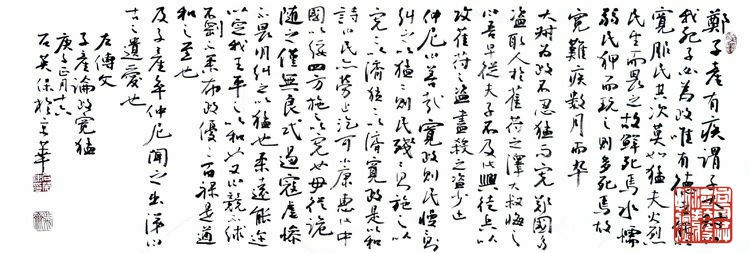 鄭子產有疾謂子大叔曰
我死子必為政唯有德者能以
寬服民其次莫如猛夫火烈
民望而畏之故鮮死焉水懦
弱民狎而玩之則多死焉故
寬難疾數月而卒
大叔為政不忍猛而寬鄭國多
盜取人於萑苻之澤大叔悔之
曰吾早從夫子不及此興徒兵以
攻萑苻之盜盡殺之盜少止
仲尼曰善哉寬政則民慢慢則
糾之以猛猛則民殘殘則施之以
寬寬以濟猛猛以濟寬政是以和
詩曰民亦勞止汔可小康惠此中
國以綏四方施之以寬也毋從詭
隨以謹無良式遏寇虐慘
不畏明糾之以猛也柔遠能邇
以定我王平之以和也又曰不競不絿
不剛不柔布政優優百祿是遒
和之至也
及子產卒仲尼聞之出涕曰
古之遺愛也
左傳文
子產論政寬猛
庚子正月十六
石英保於京華